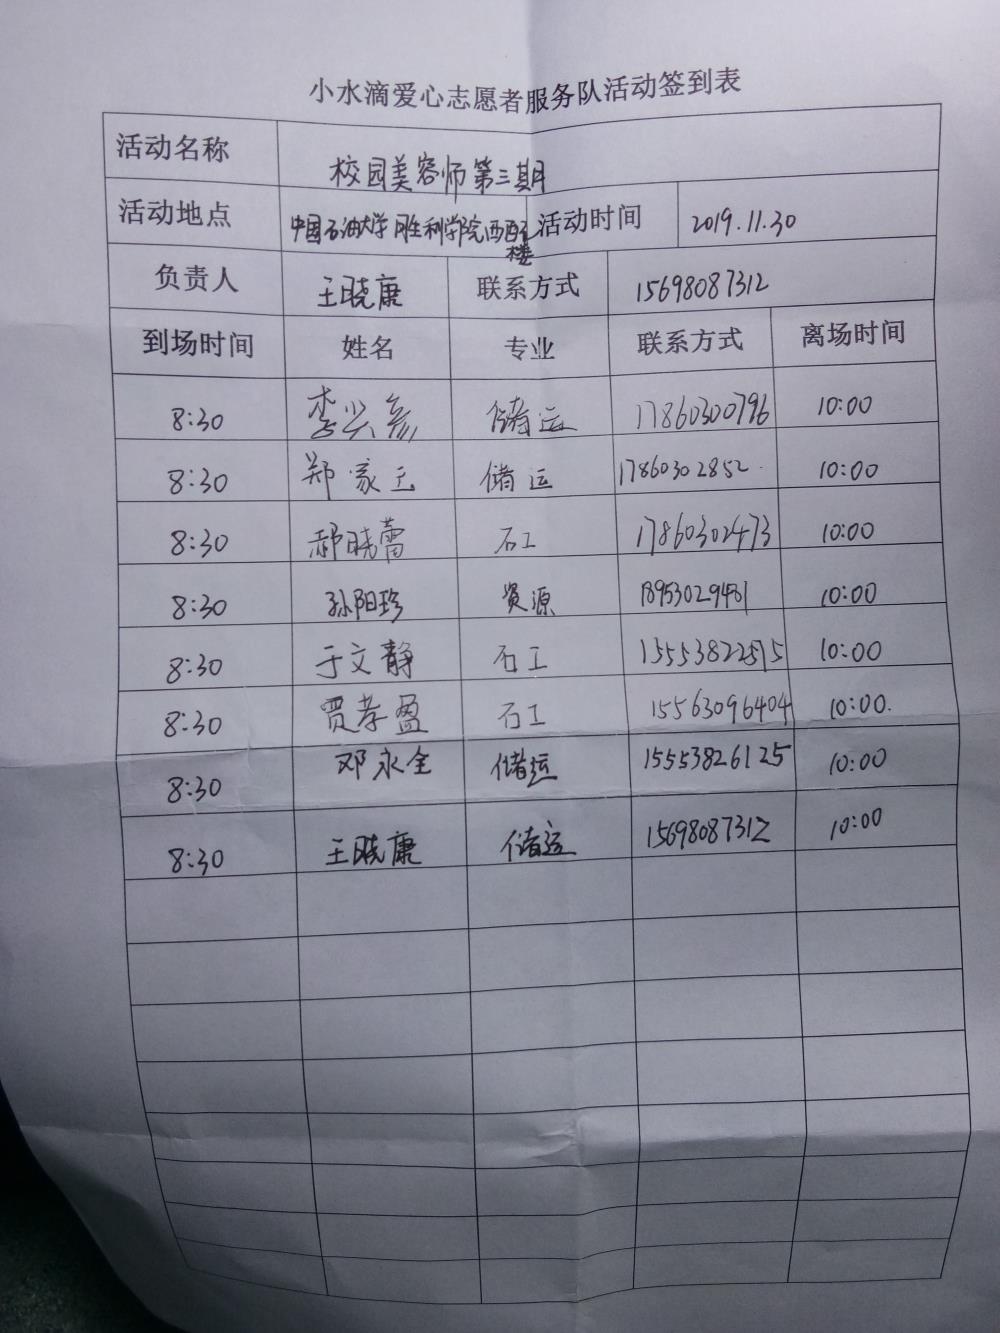 小水滴爱心志愿者服务队活动签到表
活动名称 校园美容师第三期
活动地点 中国石油大学胜利学院西配楼 活动时间 2019.11.30
负责人 王晓康 联系方式 15698087312
到场时间 姓名 专业 联系方式 离场时间
8:30 李兴彪 储运 17860300796 10:00
8:30 郑家玉 储运 17860302852 10:00
8:30 郝晓蕾 石工 17860302473 10:00
8:30 孙阳珍 资源 18953029481 10:00
8:30 于文静 石工 15553822515 10:00
8:30 贾孝盈 石工 15563096404 10:00.
8:30 邓永全 储运 15553826125 10:00
8:30 王晓康 储运 15698087312 10:00